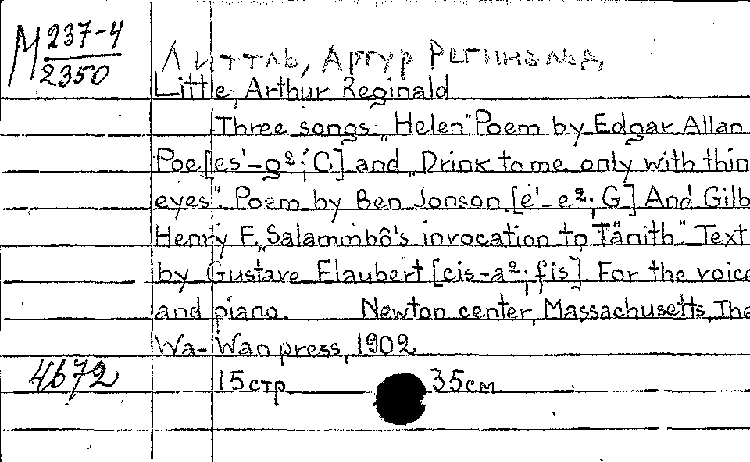 М 237-4
2350
Литтль, Артур Регинальд
Little, Arthur Reginald
Three songs: „Helen" Poem by Edgar Allan
Poe [es'-g²; C] and „Drink to me only with thin
eyes". Poem by Ben Jonson [e'-e²; G] And Gilb
Henry F. „Salammbô's invocation to Tänith" Text
by Gustave Flaubert [cis-a²; fis] For the voice
and piano. Newton center, Massachusetts, The
Wa-Wan press, 1902
4672 15 стр 35 см